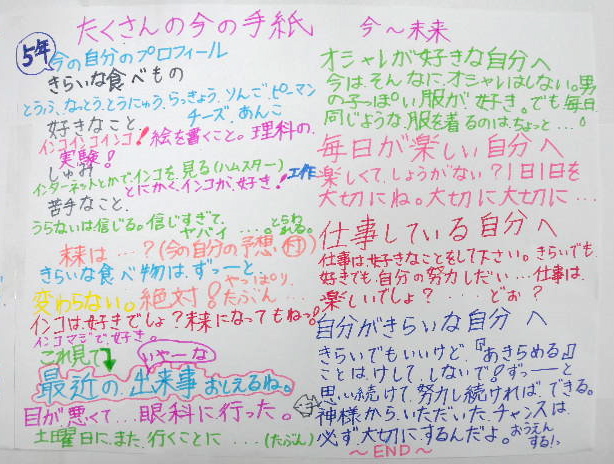 たくさんの今の手紙
5年
今の自分のプロフィール
きらいな食べもの
とうふ、なっとう、とうにゅう、らっきょう、りんご、ピーマン
チーズ、あんこ
好きなこと
インコインコインコ!絵を書くこと。理科の、
実験!
しゅみ
インターネットとかでインコを見る(ハムスター)
とにかく、インコが、好き!
工作
苦手なこと、
うらないは信じる。信じすぎて、
ヤバイ ...。
とらわれる。
未来は…?(今の自分の予想)
きらいな食べ物は、ずっーと、
変わらない。絶対!
やっぱり、
たぶん…
インコは、好きでしょ?未来になってもねっ!
インコマジで、好き。
これ見て
いやーな
最近の出来事おしえるね。
目が悪くて…眼科に行った。
土曜日に、また、行くことに…(たぶん)
今〜未来
オシャレが好きな自分へ
今は、そんなに、オシャレはしない。男
の子っぽい服が好き。でも毎日
同じような、服を着るのは、ちょっと…。
毎日が楽しい自分へ
楽しくて、しょうがない?1日1日を
大切にね。大切に大切に…
仕事している自分へ
仕事は好きなことをして下さい。きらいでも、
好きでも、自分の努力しだい…仕事は、
楽しいでしょ?....どお?
自分がきらいな自分へ
きらいでもいいけど、『あきらめる』
ことは、けして、しないで!ずっーと
思い続けて、努力し続ければ、できる。
神様から、いただいた、チャンスは、
必ず、大切にするんだよ。
おうえん
する!
〜END〜